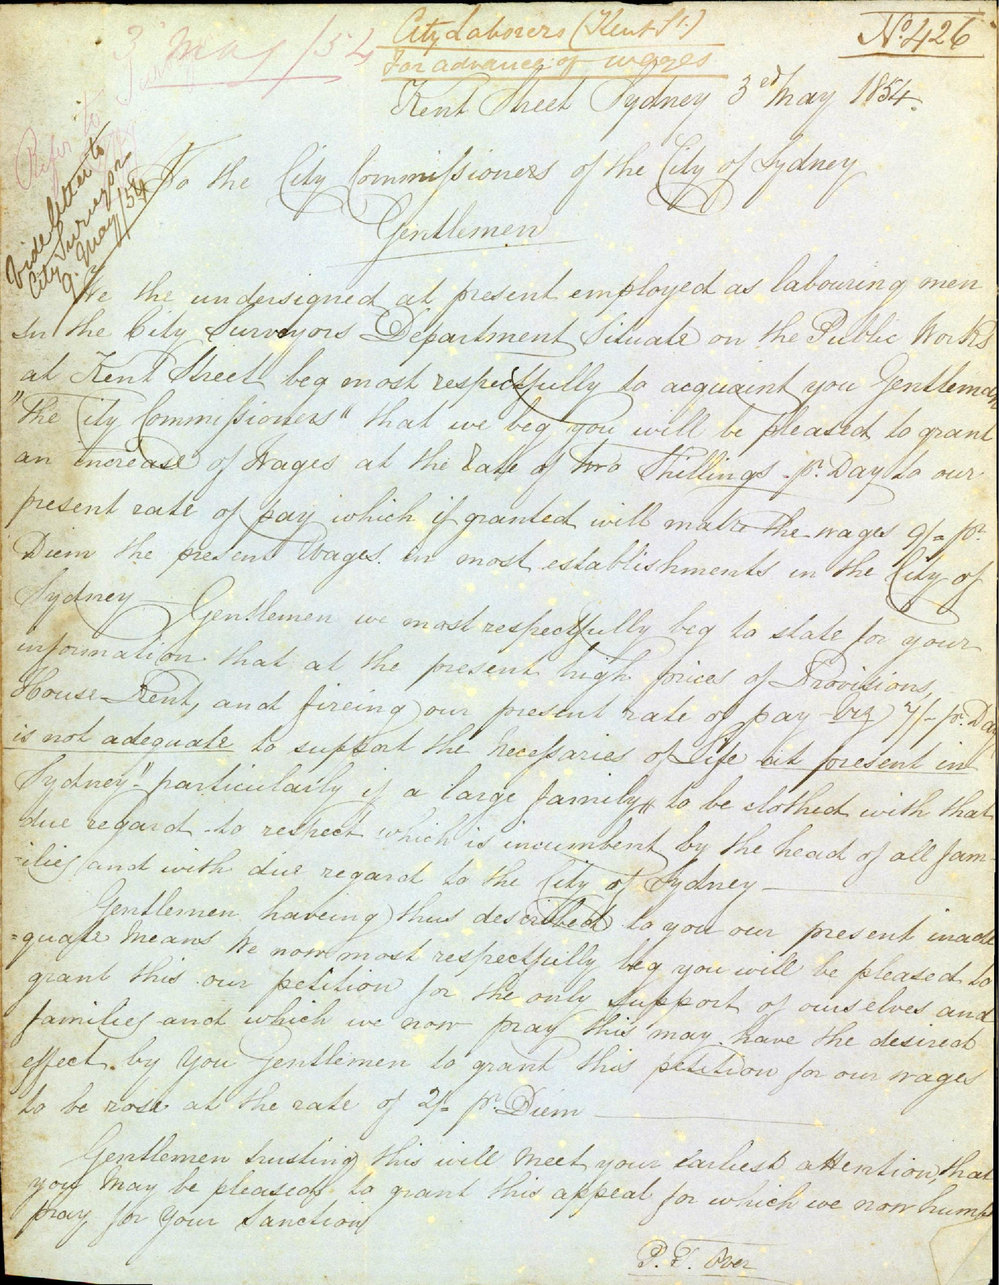 City Laborers (Kent St.)
For advance of wages
No. 426
3 May /54
Refer to
Vide letter to
City Surveyor
9. May /54
Kent Street Sydney 3rd May 1854.
To the City Commissioners of the City of Sydney
Gentlemen
We the undersigned at present employed as labouring men
in the City Surveyors Department Situate on the Public Works
at Kent Street beg most respectfully to acquaint you Gentlemen
"The City Commissioners" that we beg you will be pleased to grant
an increase of Wages at the Rate of two Shillings pr. Day to our
present rate of pay which if granted will make the wages 9/= pr.
Diem the present Wages in most establishments in the City of
Sydney — Gentlemen we most respectfully beg to state for your
information that at the present high prices of Provisions,
House-Rent, and fireing our present rate of pay viz 7/- pr. Day
is not adequate to support the Necessaries of Life at present in
Sydney" particularly if a large family to be clothed with that
due regard to respect which is incumbent by the head of all fam-
-ilies and with due regard to the City of Sydney —
Gentlemen haveing thus described to you our present inade
=quate Means We now most respectfully beg you will be pleased to
grant this our petition for the only support of ourselves and
families and which we now pray this may have the desired
effect by You Gentlemen to grant this petition for our wages
to be rose at the rate of 2/= pr. Diem —
Gentlemen trusting this will Meet your Earliest attention, that
you May be pleased to grant this appeal for which we now humb
Pray for Your Sanction
P. T. Over